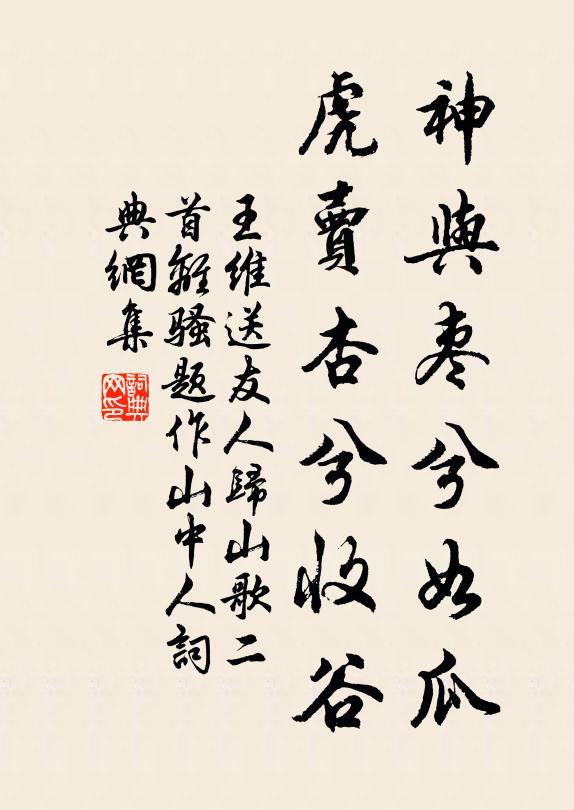 神與枣兮如瓜
虎賣杏兮收谷
王維送友人歸山歌二
首離騷题作山中人詞
典網集
詞典
网印